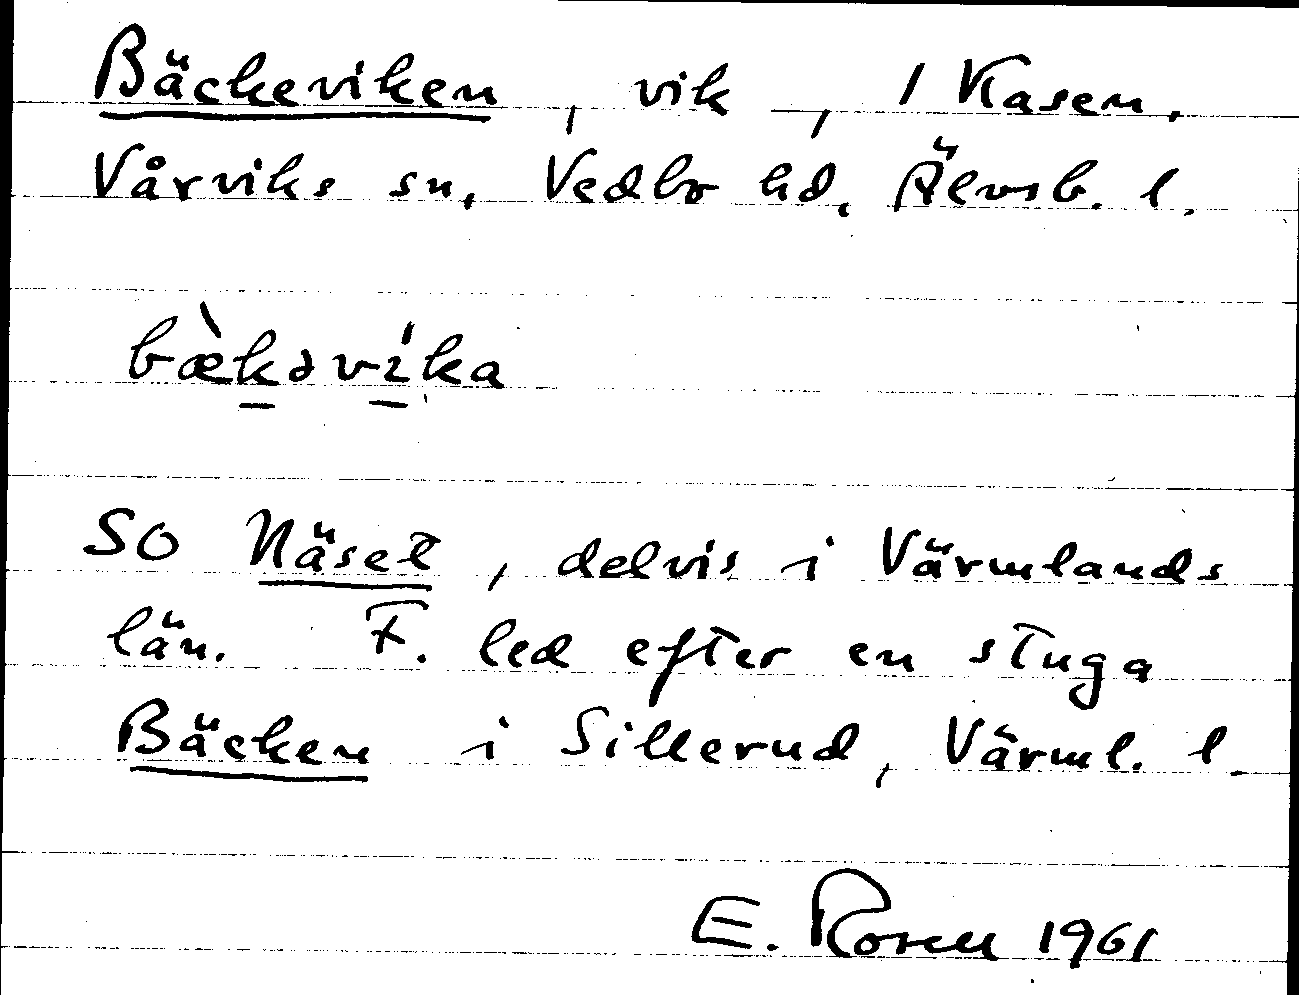 Bäckeviken, vik, 1 Kasen,
Vårviks sn, Vedbo hd, Älvsb. l.
bæ̀kəvíka
SO Näset, delvis i Värmlands
län. F. led efter en stuga
Bäcken i Sillerud, Värml. l.
E. Rosen 1961